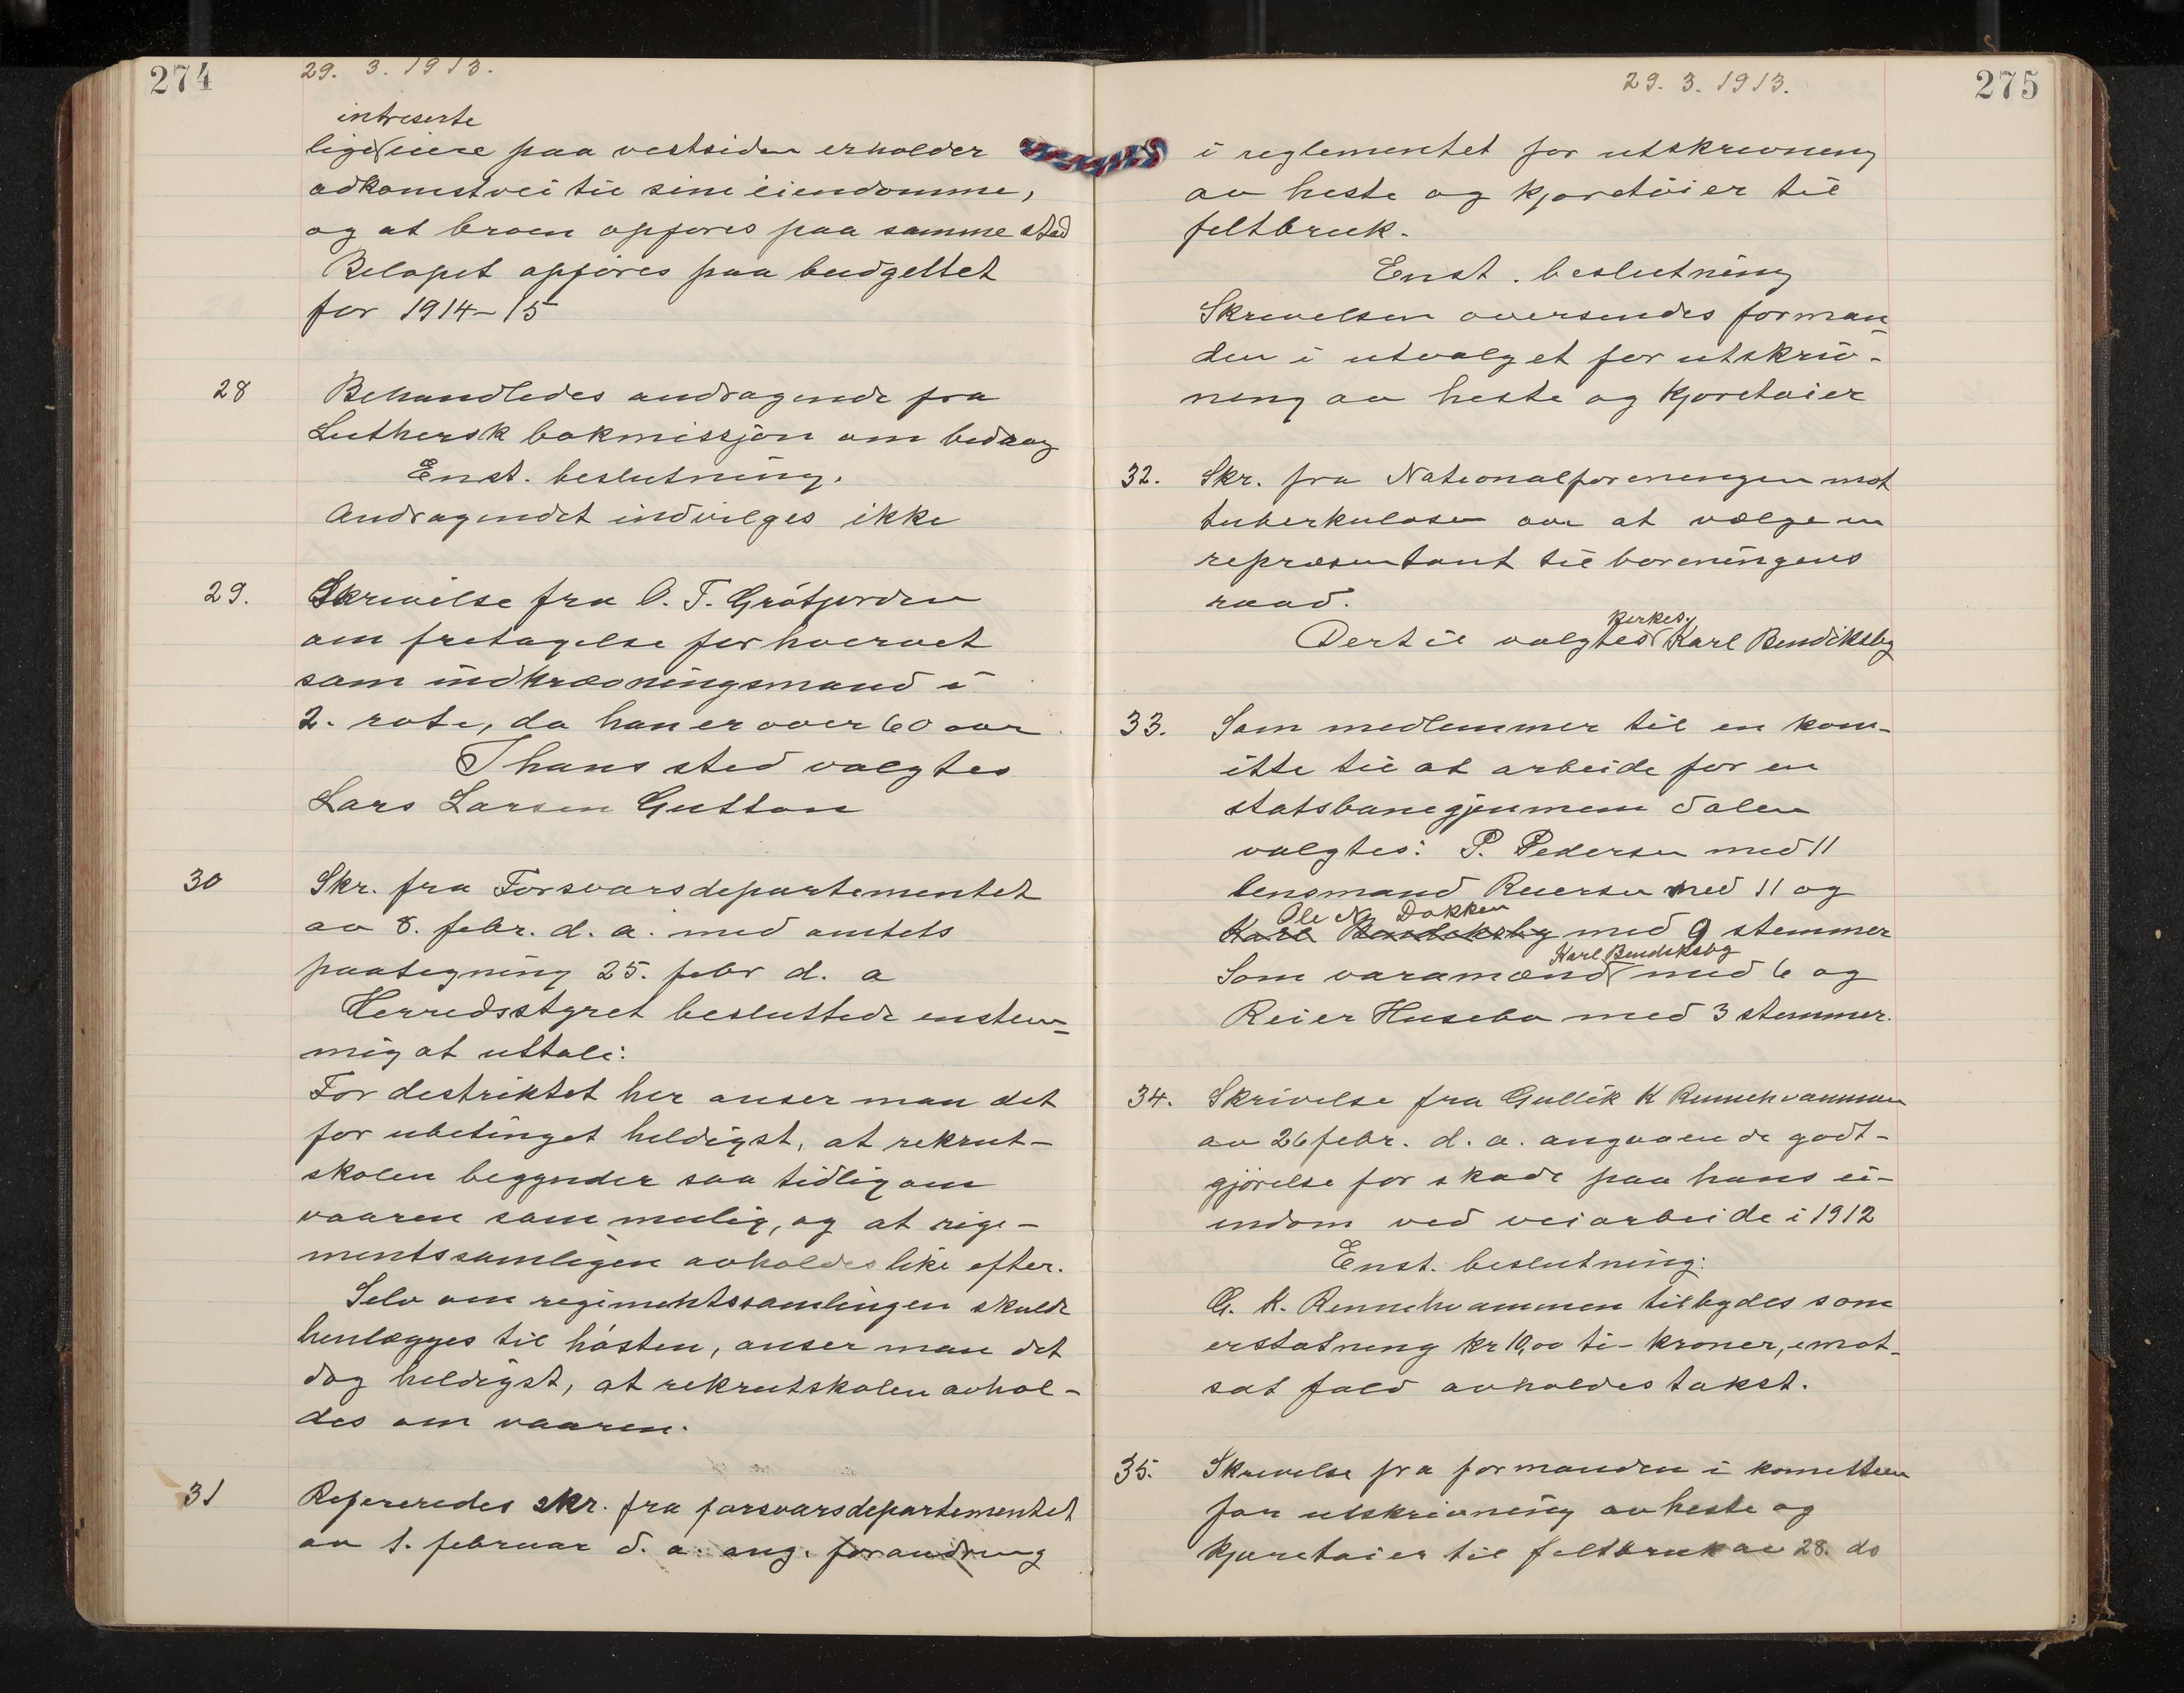 274
29. 3. 1913.
intreserte
lige eiere paa vestsiden erholder
adkomstvei til sine eiendomme,
og at broen opføres paa samme sted
Beløpet opføres paa budgettet
for 1914-15
28 Behandledes andragende fra
Luthersk bokmissjon om bidrag
Enst. beslutning.
Andragendet indvilges ikke
29. Skrivelse fra O. T. Gråtjorden
om fretagelse for hvervet
som indkrævningsmand i
2. rote, da han er over 60 aar
I hans sted valgtes
Lars Larsen Gutton
30 Skr. fra Forsvarsdepartementet
av 8. febr. d. a. med amtets
paategning 25. febr d. a
Herredsstyret besluttede enstem=
mig at uttale:
For destriktet her anser man det
for ubetinget heldigst, at rekrut-
skolen begynder saa tidlig om
vaaren som mulig, og at rige-
mentssamligen avholdes like efter.
Selv om regimentssamlingen skulde
henlægges til høsten, anser man det
dog heldigst, at rekrutskolen avhol-
des om vaaren.
31 Refereredes skr. fra forsvarsdepartementet
av 1. februar d. a. ang. forandring
275
29. 3. 1913.
i reglementet for utskrevneng
av heste og kjøretøier til
feltbruk.
Enst. beslutning
Skrivelsen oversendes forman-
den i utvalget for utskriv-
ning av heste og kjøretøier
32. Skr. fra Nationalforeningen mot
tuberkulosen om at vælge en
repræsentant til foreningens
raad.
Kirkes.
Dertil valgtes Karl Bendiksby
33. Som medlemmer til en kom-
itte til at arbeide for en
statsbane gjennem dalen
valgtes: P. Pedersen med 11
lensmand Ruersen med 11 og
Ole N. Dokken
Karl Bendiksby med 9 stemmer
Karl Bendiksby
Som varamænd med 6 og
Reier Husebø med 3 stemmer.
34. Skrivelse fra Gullik K Rennehvammen
av 26 febr. d. a. angaaende godt-
gjørelse for skade paa hans ei-
endom ved veiarbeide i 1912
Enst. beslutning:
G. K. Rennehvammen tilbydes som
erstatning kr 10,00 ti- kroner, i mot-
sat fald avholdes takst.
35. Skrivelse fra formanden i komitteen
for utskrivning av heste og
kjøretøier til feltbruk av 28. ds